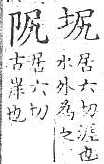 居六切涯也
水外為之
居六切
古岸也